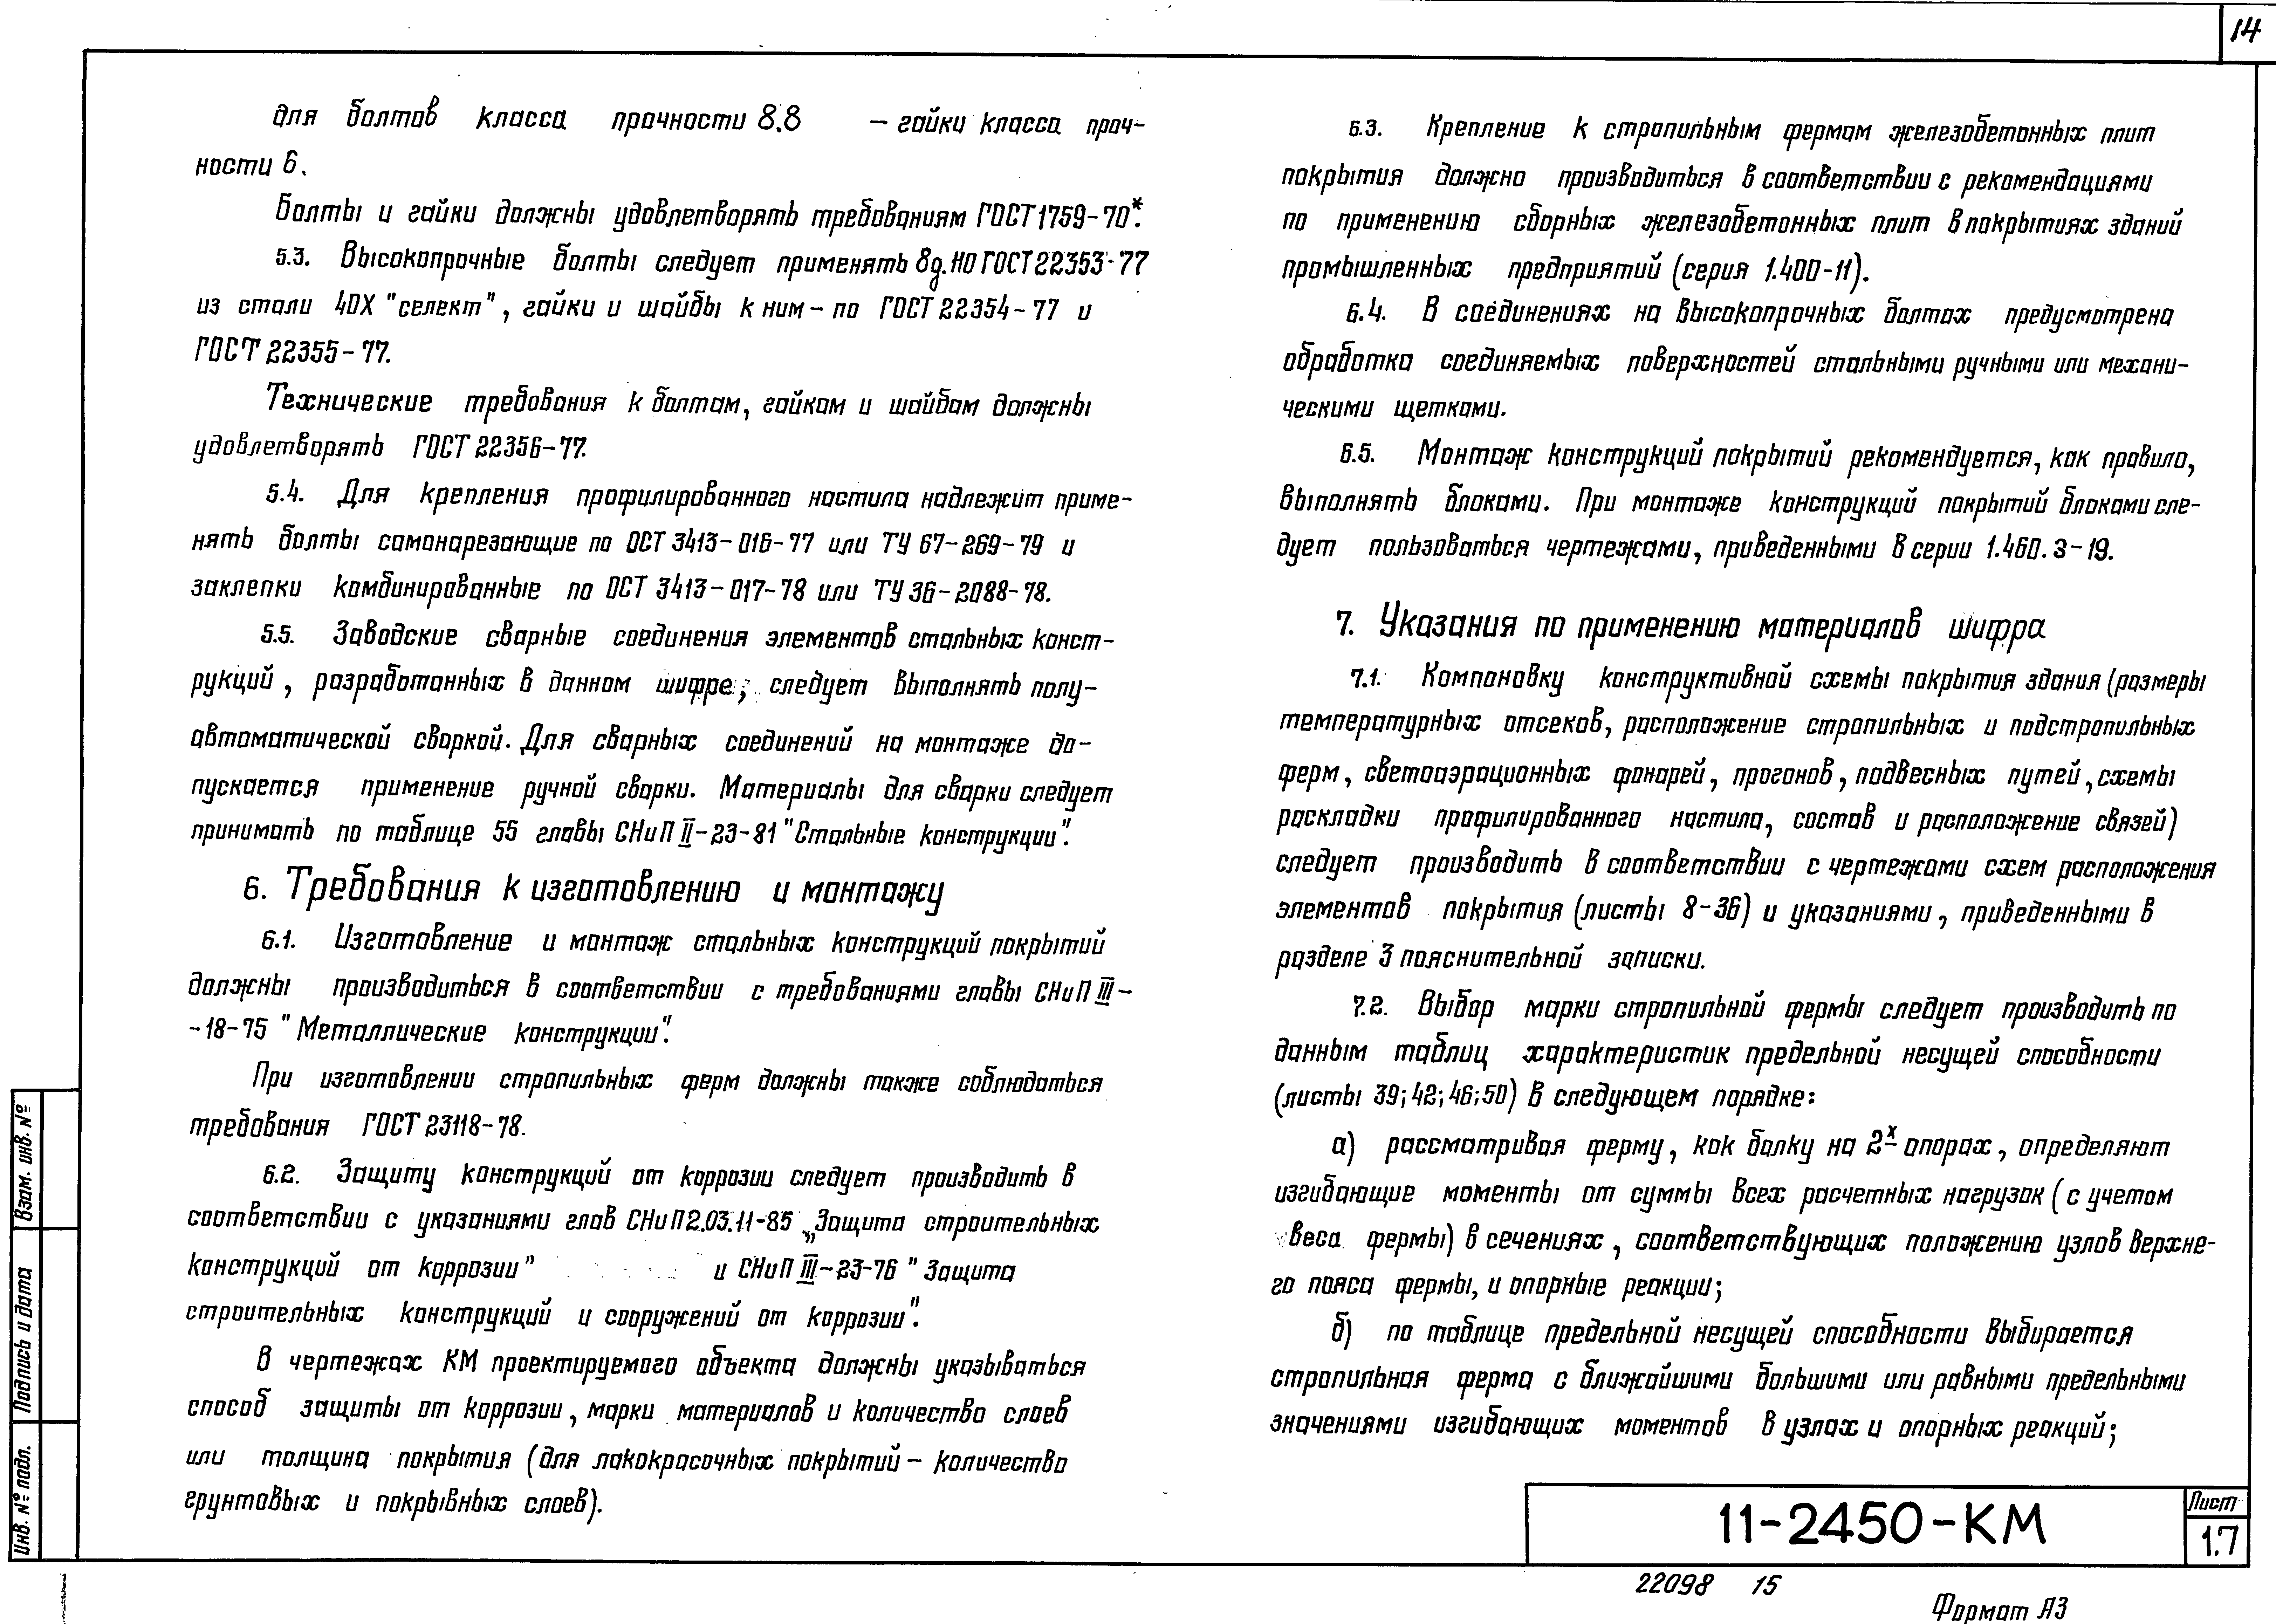 14
для болтов класса прочности 8.8 – гайки класса проч-
ности 6.
Болты и гайки должны удовлетворять требованиям ГОСТ 1759-70*.
5.3. Высокопрочные болты следует применять по ГОСТ 22353-77
из стали 40Х "селект", гайки и шайбы к ним – по ГОСТ 22354-77 и
ГОСТ 22355-77.
Технические требования к болтам, гайкам и шайбам должны
удовлетворять ГОСТ 22356-77.
5.4. Для крепления профилированного настила надлежит приме-
нять болты самонарезающие по ОСТ 3413-016-77 или ТУ 67-269-79 и
заклепки комбинированные по ОСТ 3413-017-78 или ТУ 36-2088-78.
5.5. Заводские сварные соединения элементов стальных конст-
рукций, разработанных в данном шифре, следует выполнять полу-
автоматической сваркой. Для сварных соединений на монтаже до-
пускается применение ручной сварки. Материалы для сварки следует
принимать по таблице 55 главы СНиП II-23-81 "Стальные конструкции".
6. Требования к изготовлению и монтажу
6.1. Изготовление и монтаж стальных конструкций покрытий
должны производиться в соответствии с требованиями главы СНиП III-
-18-75 "Металлические конструкции".
При изготовлении стропильных ферм должны также соблюдаться
требования ГОСТ 23118-78.
6.2. Защиту конструкций от коррозии следует производить в
соответствии с указаниями глав СНиП 2.03.11-85 „Защита строительных
конструкций от коррозии" и СНиП III-23-76 "Защита
строительных конструкций и сооружений от коррозии".
В чертежах КМ проектируемого объекта должны указываться
способ защиты от коррозии, марки материалов и количество слоев
или толщина покрытия (для лакокрасочных покрытий – количество
грунтовых и покрывных слоев).
6.3. Крепление к стропильным фермам железобетонных плит
покрытия должно производиться в соответствии с рекомендациями
по применению сборных железобетонных плит в покрытиях зданий
промышленных предприятий (серия 1.400-11).
6.4. В соединениях на высокопрочных болтах предусмотрена
обработка соединяемых поверхностей стальными ручными или механи-
ческими щетками.
6.5. Монтаж конструкций покрытий рекомендуется, как правило,
выполнять блоками. При монтаже конструкций покрытий блоками сле-
дует пользоваться чертежами, приведенными в серии 1.460.3-19.
7. Указания по применению материалов шифра
7.1. Компоновку конструктивной схемы покрытия здания (размеры
температурных отсеков, расположение стропильных и подстропильных
ферм, светоаэрационных фонарей, прогонов, подвесных путей, схемы
раскладки профилированного настила, состав и расположение связей)
следует производить в соответствии с чертежами схем расположения
элементов покрытия (листы 8-36) и указаниями, приведенными в
разделе 3 пояснительной записки.
7.2. Выбор марки стропильной фермы следует производить по
данным таблиц характеристик предельной несущей способности
(листы 39; 42; 46; 50) в следующем порядке:
а) рассматривая ферму, как балку на 2х опорах, определяют
изгибающие моменты от суммы всех расчетных нагрузок (с учетом
веса фермы) в сечениях, соответствующих положению узлов верхне-
го пояса фермы, и опорные реакции;
б) по таблице предельной несущей способности выбирается
стропильная ферма с ближайшими большими или равными предельными
значениями изгибающих моментов в узлах и опорных реакций;
Взам. инв. №
Подпись и дата
Инв. № подл.
11-2450-КМ
Лист
1.7
22098 15
Формат А3